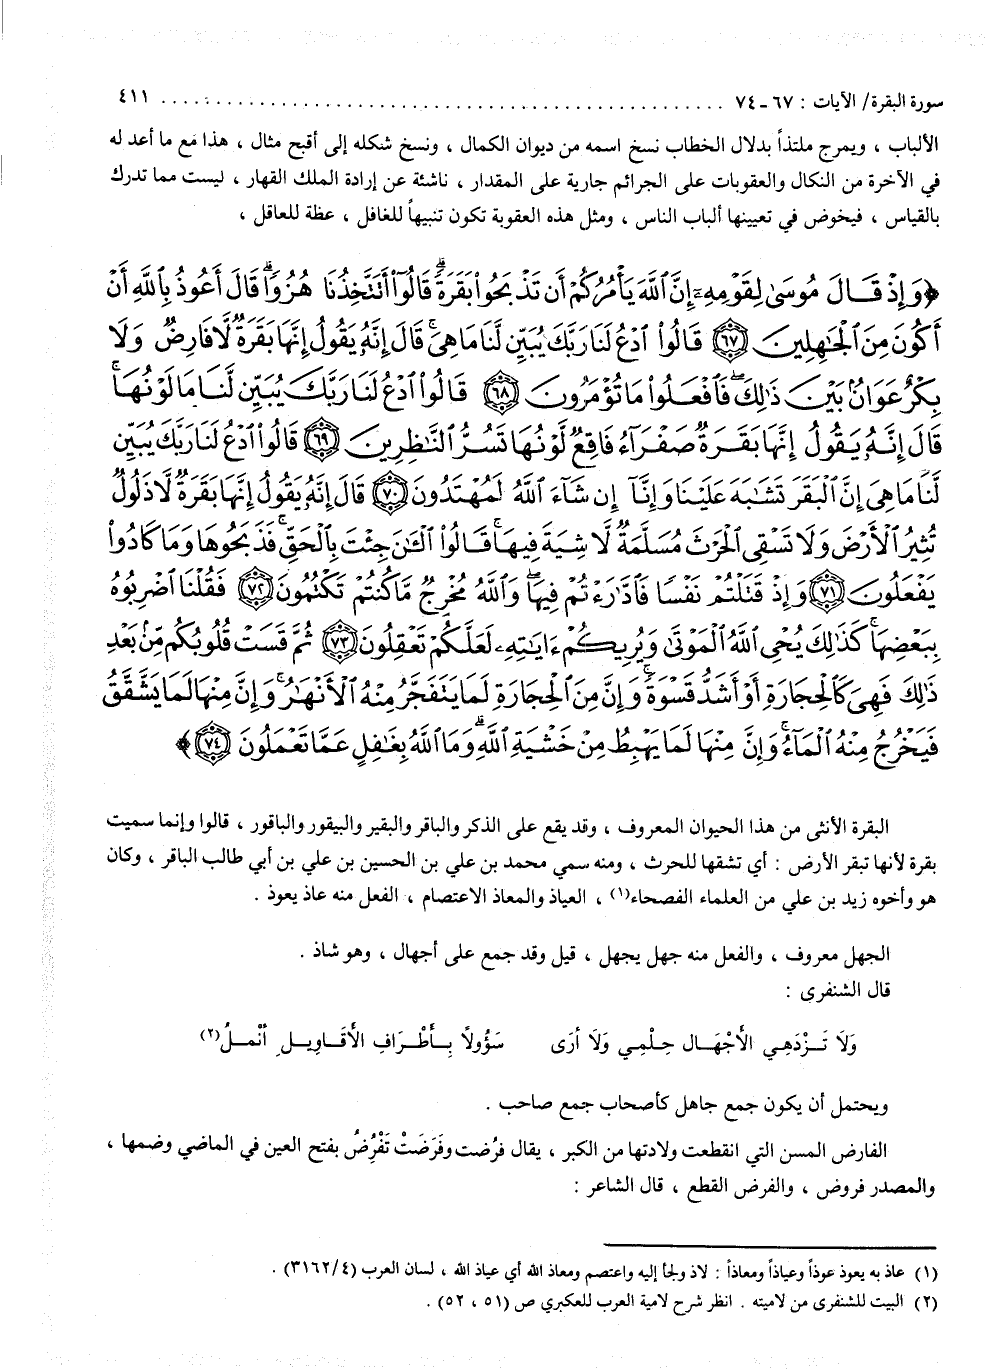 سورة البقرة/ الآيات : ٦٧ـ٧٤ ........................................................ ٤١١
الألباب ، ويمرج ملتذاً بدلال الخطاب نسخ اسمه من ديوان الكمال ، ونسخ شكله إلى أقبح مثال ، هذا مع ما أعد له
في الآخرة من النكال والعقوبات على الجرائم جارية على المقدار ، ناشئة عن إرادة الملك القهار ، ليست مما تدرك
بالقياس ، فيخوض في تعيينها ألباب الناس ، ومثل هذه العقوبة تكون تنبيهاً للغافل ، عظة للعاقل ،
﴿وَإِذْ قَالَ مُوسَىٰ لِقَوْمِهِۦٓ إِنَّ ٱللَّهَ يَأْمُرُكُمْ أَن تَذْبَحُوا۟ بَقَرَةً ۖ قَالُوٓا۟ أَتَتَّخِذُنَا هُزُوًا ۖ قَالَ أَعُوذُ بِٱللَّهِ أَنْ
أَكُونَ مِنَ ٱلْجَـٰهِلِينَ ﴿٦٧﴾ قَالُوا۟ ٱدْعُ لَنَا رَبَّكَ يُبَيِّن لَّنَا مَا هِىَ ۚ قَالَ إِنَّهُۥ يَقُولُ إِنَّهَا بَقَرَةٌ لَّا فَارِضٌ وَلَا
بِكْرٌ عَوَانٌۢ بَيْنَ ذَٰلِكَ ۖ فَٱفْعَلُوا۟ مَا تُؤْمَرُونَ ﴿٦٨﴾ قَالُوا۟ ٱدْعُ لَنَا رَبَّكَ يُبَيِّن لَّنَا مَا لَوْنُهَا ۚ
قَالَ إِنَّهُۥ يَقُولُ إِنَّهَا بَقَرَةٌ صَفْرَآءُ فَاقِعٌ لَّوْنُهَا تَسُرُّ ٱلنَّـٰظِرِينَ ﴿٦٩﴾ قَالُوا۟ ٱدْعُ لَنَا رَبَّكَ يُبَيِّن
لَّنَا مَا هِىَ إِنَّ ٱلْبَقَرَ تَشَـٰبَهَ عَلَيْنَا وَإِنَّآ إِن شَآءَ ٱللَّهُ لَمُهْتَدُونَ ﴿٧٠﴾ قَالَ إِنَّهُۥ يَقُولُ إِنَّهَا بَقَرَةٌ لَّا ذَلُولٌ
تُثِيرُ ٱلْأَرْضَ وَلَا تَسْقِى ٱلْحَرْثَ مُسَلَّمَةٌ لَّا شِيَةَ فِيهَا ۚ قَالُوا۟ ٱلْـَٔـٰنَ جِئْتَ بِٱلْحَقِّ ۚ فَذَبَحُوهَا وَمَا كَادُوا۟
يَفْعَلُونَ ﴿٧١﴾ وَإِذْ قَتَلْتُمْ نَفْسًا فَٱدَّٰرَْٔتُمْ فِيهَا ۖ وَٱللَّهُ مُخْرِجٌ مَّا كُنتُمْ تَكْتُمُونَ ﴿٧٢﴾ فَقُلْنَا ٱضْرِبُوهُ
بِبَعْضِهَا ۚ كَذَٰلِكَ يُحْىِ ٱللَّهُ ٱلْمَوْتَىٰ وَيُرِيكُمْ ءَايَـٰتِهِۦ لَعَلَّكُمْ تَعْقِلُونَ ﴿٧٣﴾ ثُمَّ قَسَتْ قُلُوبُكُم مِّنۢ بَعْدِ
ذَٰلِكَ فَهِىَ كَٱلْحِجَارَةِ أَوْ أَشَدُّ قَسْوَةً ۚ وَإِنَّ مِنَ ٱلْحِجَارَةِ لَمَا يَتَفَجَّرُ مِنْهُ ٱلْأَنْهَـٰرُ ۚ وَإِنَّ مِنْهَا لَمَا يَشَّقَّقُ
فَيَخْرُجُ مِنْهُ ٱلْمَآءُ ۚ وَإِنَّ مِنْهَا لَمَا يَهْبِطُ مِنْ خَشْيَةِ ٱللَّهِ ۗ وَمَا ٱللَّهُ بِغَـٰفِلٍ عَمَّا تَعْمَلُونَ ﴿٧٤﴾﴾
البقرة الأنثى من هذا الحيوان المعروف ، وقد يقع على الذكر والباقر والبقير والبيقور والباقور ، قالوا وإنما سميت
بقرة لأنها تبقر الأرض : أي تشقها للحرث ، ومنه سمي محمد بن علي بن الحسين بن علي بن أبي طالب الباقر ، وكان
هو وأخوه زيد بن علي من العلماء الفصحاء(١) ، العياذ والمعاذ الاعتصام ، الفعل منه عاذ يعوذ .
الجهل معروف ، والفعل منه جهل يجهل ، قيل وقد جمع على أجهال ، وهو شاذ .
قال الشنفرى :
وَلَا تَـزْدَهِـي الْأَجْهَـال حِلْـمِي وَلَا أرَى    سَؤُولاً بِـأَطْـرَافِ الأَقَـاوِيـلِ أَنْمـلُ(٢)
ويحتمل أن يكون جمع جاهل كأصحاب جمع صاحب .
الفارض المسن التي انقطعت ولادتها من الكبر ، يقال فرُضت وفَرَضَتْ تَفْرُضُ بفتح العين في الماضي وضمها ،
والمصدر فروض ، والفرض القطع ، قال الشاعر :
(١) عاذ به يعوذ عوذاً وعياذاً ومعاذاً : لاذ ولجأ إليه واعتصم ومعاذ الله أي عياذ الله ، لسان العرب (٣١٦٢/٤) .
(٢) البيت للشنفرى من لاميته . انظر شرح لامية العرب للعكبري ص (٥١ ، ٥٢) .